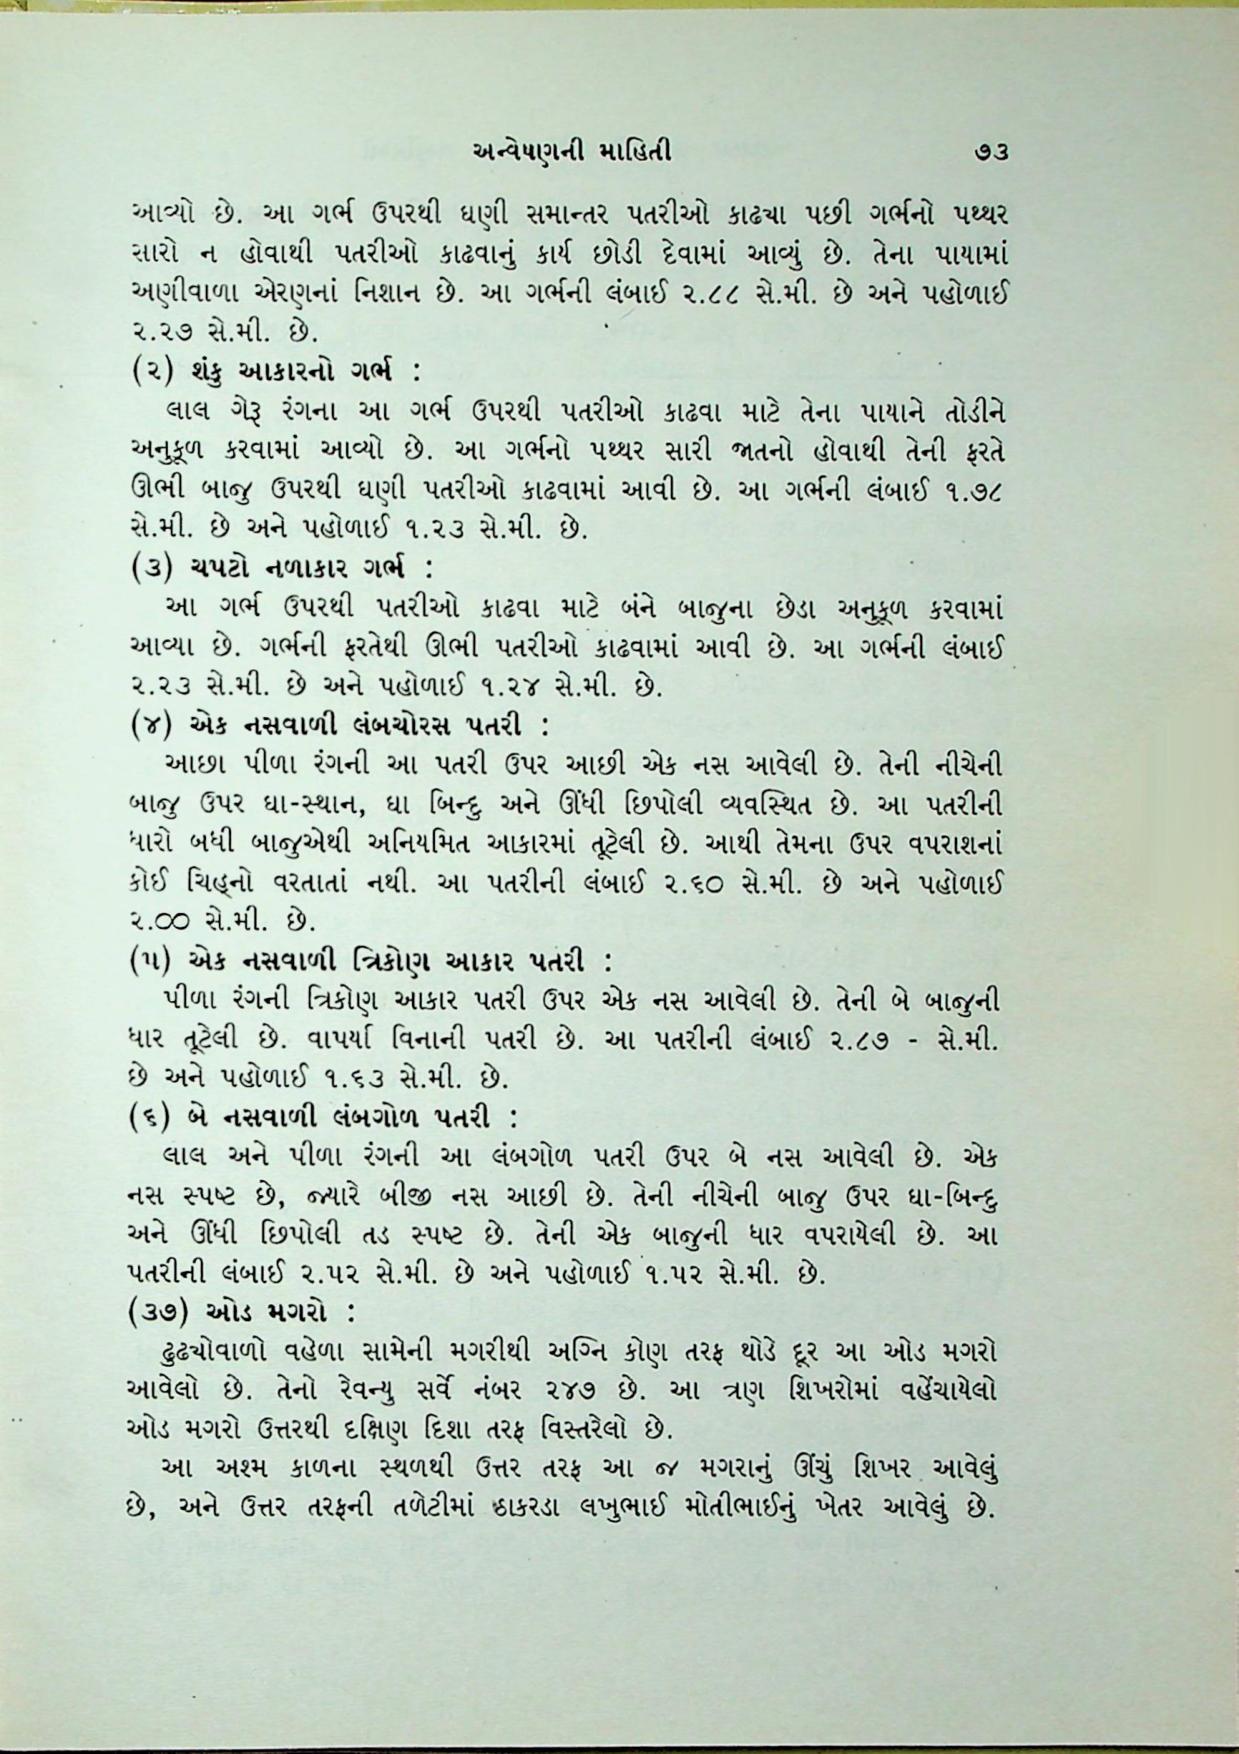 અન્વેષણની માહિતી ૭૩
આવ્યો છે. આ ગર્ભ ઉપરથી ઘણી સમાન્તર પતરીઓ કાઢ્યા પછી ગર્ભનો પથ્થર
સારો ન હોવાથી પતરીઓ કાઢવાનું કાર્ય છોડી દેવામાં આવ્યું છે. તેના પાયામાં
અણીવાળા એરણનાં નિશાન છે. આ ગર્ભની લંબાઈ ૨.૮૮ સે.મી. છે અને પહોળાઈ
૨.૨૭ સે.મી. છે.
(૨) શંકુ આકારનો ગર્ભ :
લાલ ગેરૂ રંગના આ ગર્ભ ઉપરથી પતરીઓ કાઢવા માટે તેના પાયાને તોડીને
અનુકૂળ કરવામાં આવ્યો છે. આ ગર્ભનો પથ્થર સારી જાતનો હોવાથી તેની ફરતે
ઊભી બાજુ ઉપરથી ઘણી પતરીઓ કાઢવામાં આવી છે. આ ગર્ભની લંબાઈ ૧.૭૮
સે.મી. છે અને પહોળાઈ ૧.૨૩ સે.મી. છે.
(૩) ચપટો નળાકાર ગર્ભ :
આ ગર્ભ ઉપરથી પતરીઓ કાઢવા માટે બંને બાજુના છેડા અનુકૂળ કરવામાં
આવ્યા છે. ગર્ભની ફરતેથી ઊભી પતરીઓ કાઢવામાં આવી છે. આ ગર્ભની લંબાઈ
૨.૨૩ સે.મી. છે અને પહોળાઈ ૧.૨૪ સે.મી. છે.
(૪) એક નસવાળી લંબચોરસ પતરી :
આછા પીળા રંગની આ પતરી ઉપર આછી એક નસ આવેલી છે. તેની નીચેની
બાજુ ઉપર ઘા-સ્થાન, ઘા બિન્દુ અને ઊંધી છિપોલી વ્યવસ્થિત છે. આ પતરીની
ધારો બધી બાજુએથી અનિયમિત આકારમાં તૂટેલી છે. આથી તેમના ઉપર વપરાશનાં
કોઈ ચિહ્નો વરતાતાં નથી. આ પતરીની લંબાઈ ૨.૬૦ સે.મી. છે અને પહોળાઈ
૨.૦૦ સે.મી. છે.
(૫) એક નસવાળી ત્રિકોણ આકાર પતરી :
પીળા રંગની ત્રિકોણ આકાર પતરી ઉપર એક નસ આવેલી છે. તેની બે બાજુની
ધાર તૂટેલી છે. વાપર્યા વિનાની પતરી છે. આ પતરીની લંબાઈ ૨.૮૭ - સે.મી.
છે અને પહોળાઈ ૧.૬૩ સે.મી. છે.
(૬) બે નસવાળી લંબગોળ પતરી :
લાલ અને પીળા રંગની આ લંબગોળ પતરી ઉપર બે નસ આવેલી છે. એક
નસ સ્પષ્ટ છે, જ્યારે બીજી નસ આછી છે. તેની નીચેની બાજુ ઉપર ઘા-બિન્દુ
અને ઊંધી છિપોલી તડ સ્પષ્ટ છે. તેની એક બાજુની ધાર વપરાયેલી છે. આ
પતરીની લંબાઈ ૨.૫૨ સે.મી. છે અને પહોળાઈ ૧.૫૨ સે.મી. છે.
(૩૭) ઓડ મગરો :
ઢુઢચોવાળો વહેળા સામેની મગરીથી અગ્નિ કોણ તરફ થોડે દૂર આ ઓડ મગરો
આવેલો છે. તેનો રેવન્યુ સર્વે નંબર ૨૪૭ છે. આ ત્રણ શિખરોમાં વહેંચાયેલો
ઓડ મગરો ઉત્તરથી દક્ષિણ દિશા તરફ વિસ્તરેલો છે.
આ અશ્મ કાળના સ્થળથી ઉત્તર તરફ આ જ મગરાનું ઊંચું શિખર આવેલું
છે, અને ઉત્તર તરફની તળેટીમાં ઠાકરડા લખુભાઈ મોતીભાઈનું ખેતર આવેલું છે.